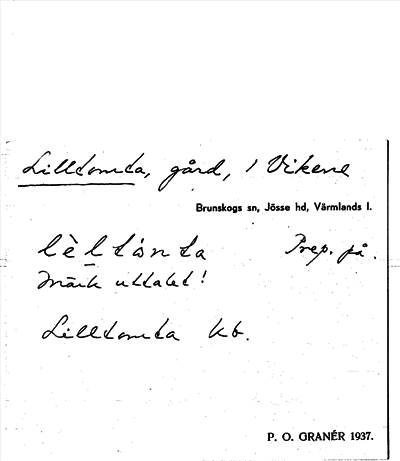 Lilltomta, gård, / Vikene
Brunskogs sn, Jösse hd, Värmlands l.
lèltònta Prep. på.
Märk uttalet!
Lilltomta kb.
P. O. GRANÉR 1937.